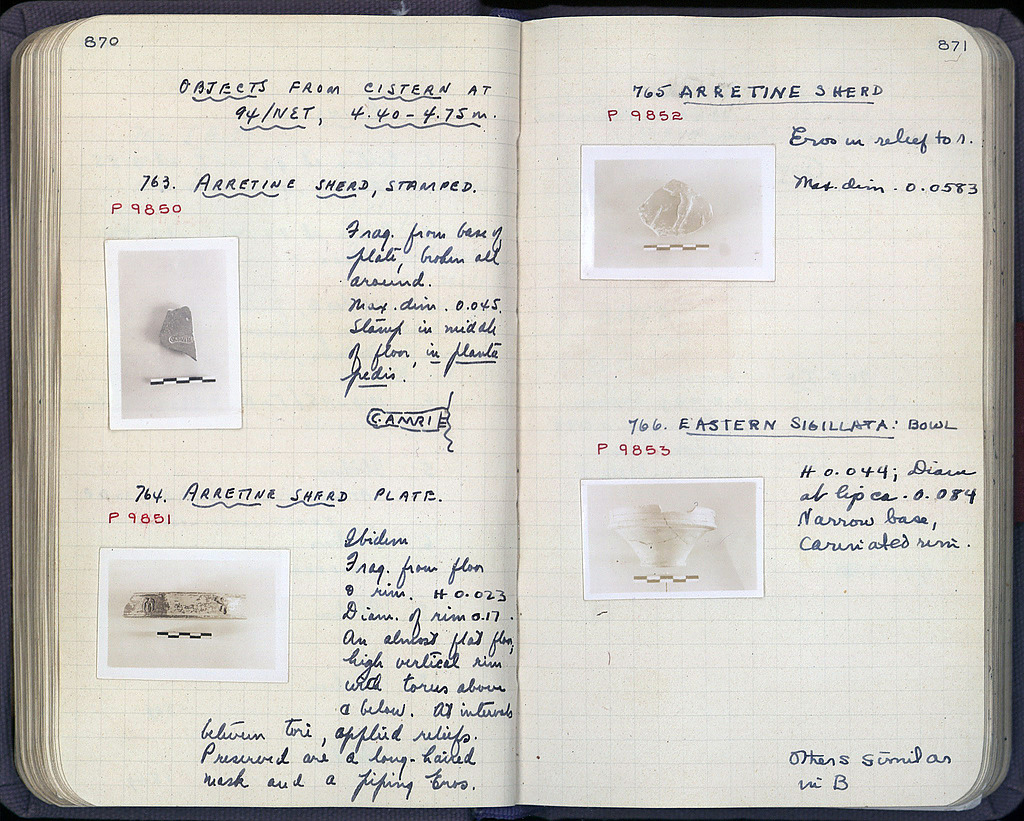 870
OBJECTS FROM CISTERN AT
94/NET, 4.40-4.75 m.
763. ARRETINE SHERD, STAMPED.
P 9850
Frag. from base of
plate, broken all
around.
Max. dim. 0.045.
Stamp in middle
of floor, in planta
pedis.
C.AMRI
764. ARRETINE SHERD PLATE.
P 9851
Ibidem
Frag. from floor
& rim. H 0.023
Diam. of rim 0.17.
An almost flat floor,
high vertical rim
with torus above
& below. At intervals
between tori, applied reliefs.
Preserved are a long-haired
mask and a piping Eros.
871
765 ARRETINE SHERD
P 9852
Eros in relief to r.
Max. dim. 0.0583
766. EASTERN SIGILLATA: BOWL
P 9853
H 0.044; Diam
at lip ca. 0.084
Narrow base,
carinated rim.
Others similar
in B